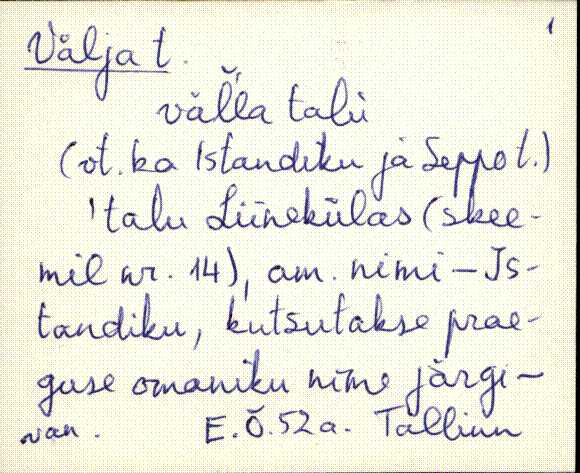 1
Välja t.
väĺĺa talu
(vt. ka Istandiku ja Seppo t.)
'talu Liineküla​s (skee-
mil nr. 14), am. nimi – Is-
tandiku, kutsutakse prae-
guse omaniku nime järgi –
E.Õ. 52 a. Tallinn